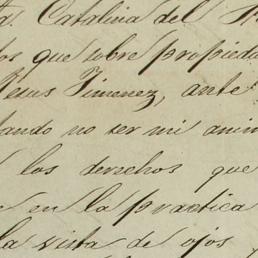 a. Catalina del
os que sobre propieda
Jesus Jimenez, ante
tando no ser mi anim
los derechos que
e en la practica
la vista de ojos